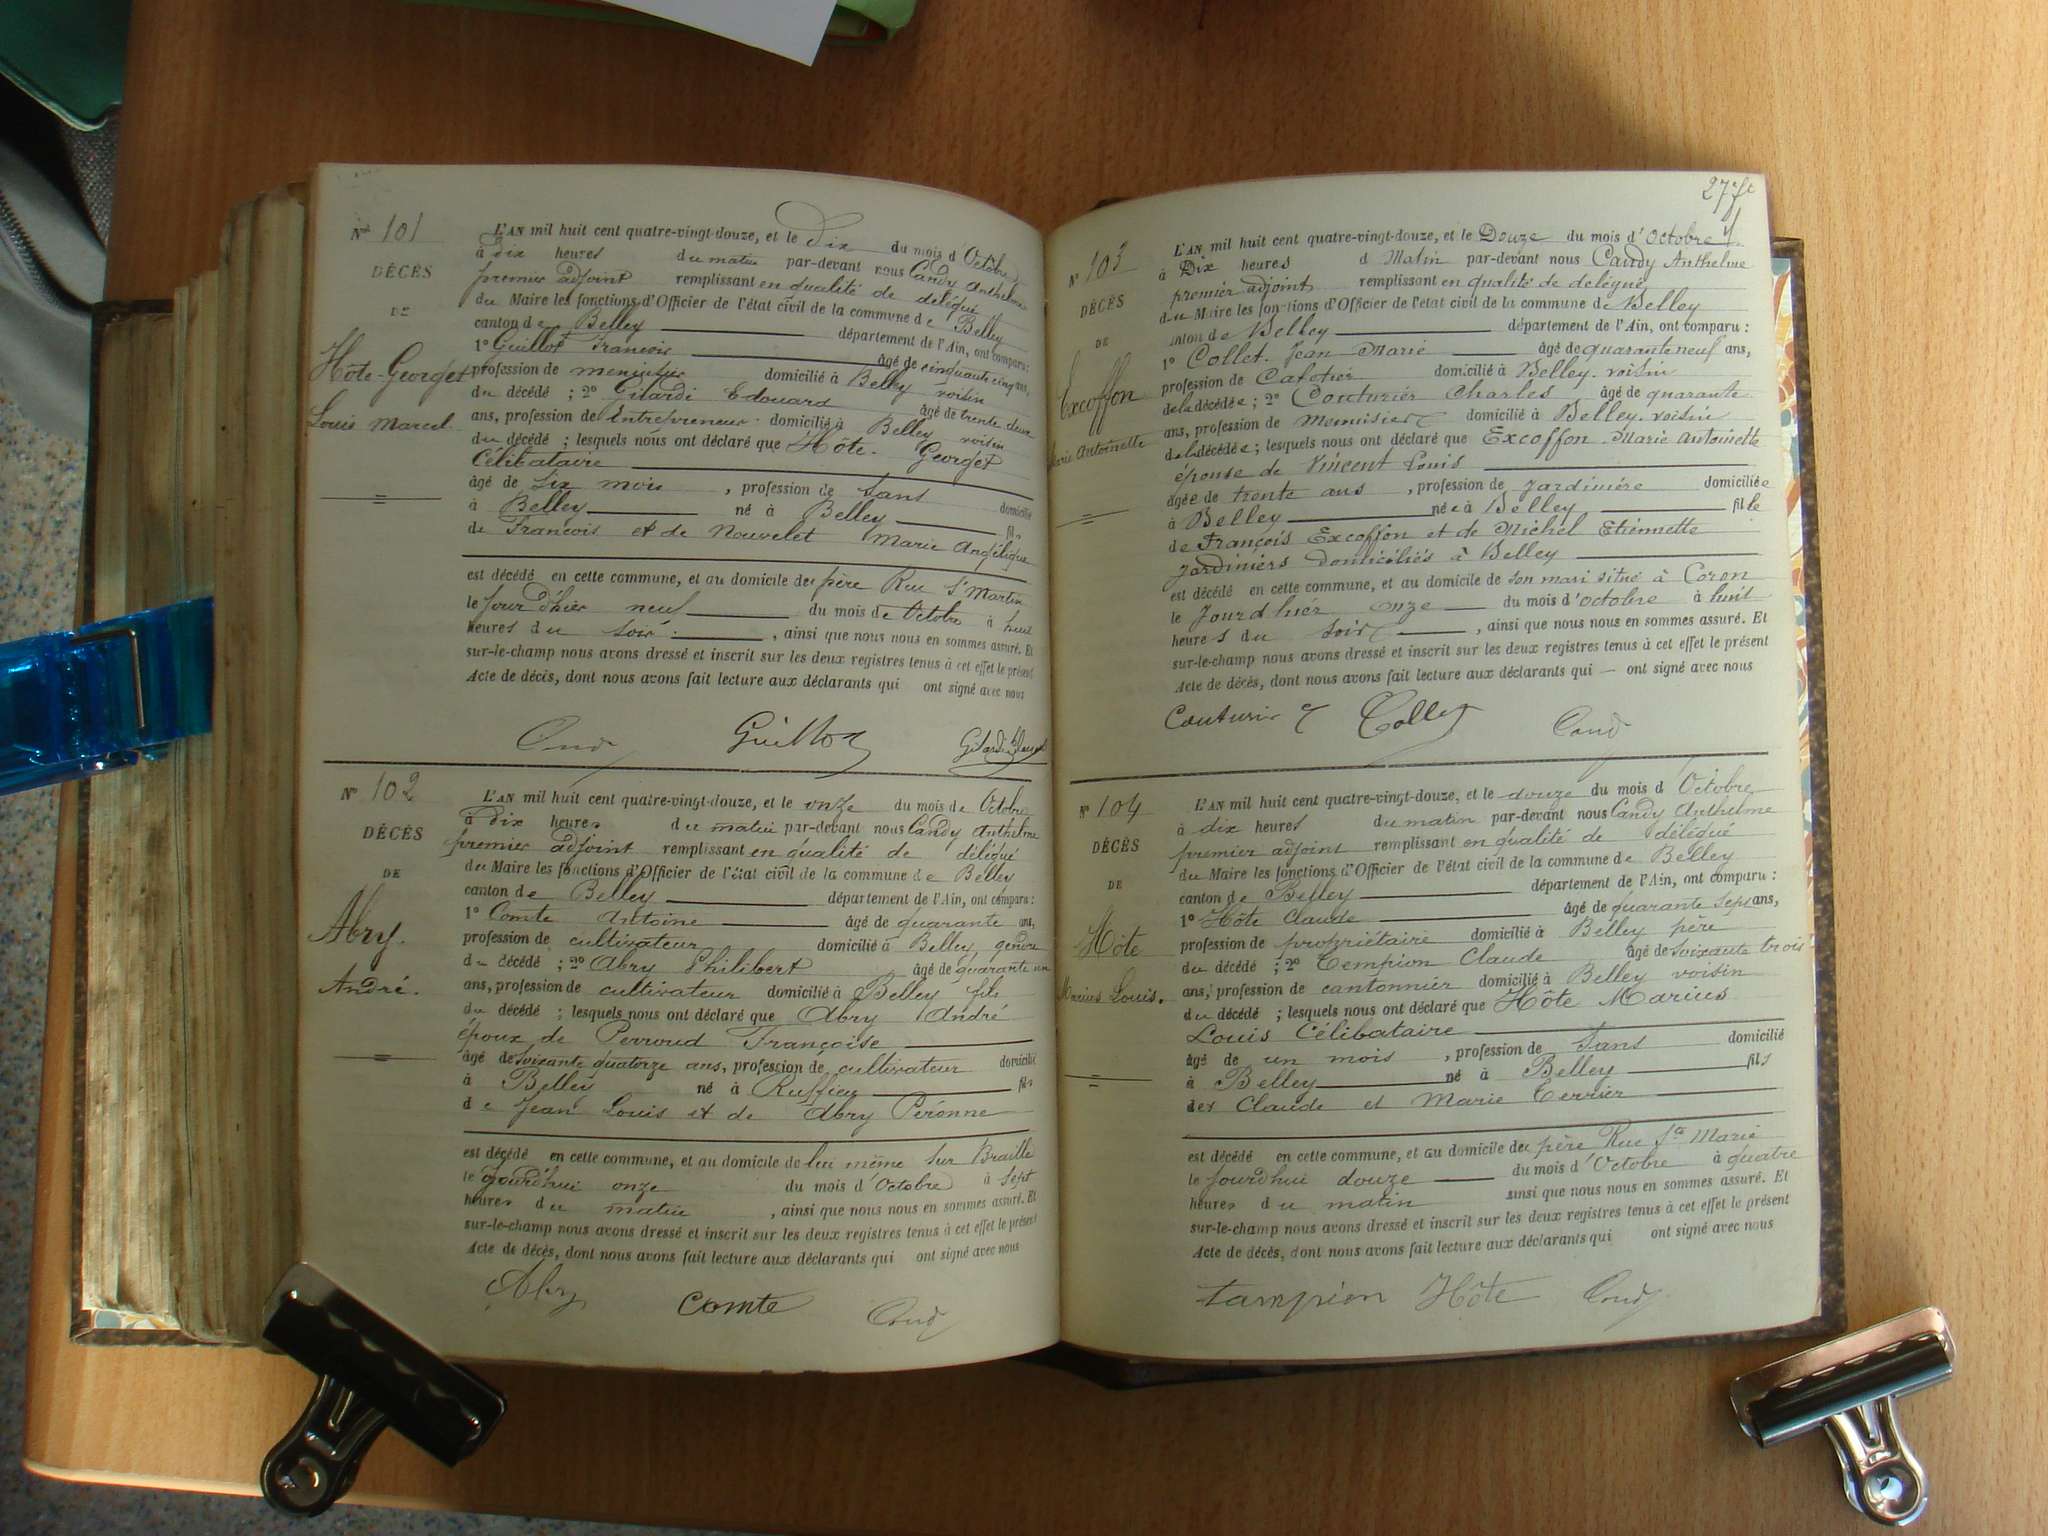 Nº 101
DÉCÈS
DE
Hôte-Georget
Louis Marcel
L'AN mil huit cent quatre-vingt-douze, et le Dix du mois d'Octobre
à Dix heures du matin par-devant nous Candy Anthelme
premier adjoint remplissant en qualité de délégué
du Maire les fonctions d'Officier de l'état civil de la commune de Belley
canton de Belley département de l'Ain, ont comparu :
1º Guillot François âgé de cinquante cinq ans,
profession de menuisier domicilié à Belley voisin
du décédé ; 2º Gilardi Edouard âgé de trente deux
ans, profession de Entrepreneur domicilié à Belley voisin
du décédé ; lesquels nous ont déclaré que Hôte- Georget
Célibataire
âgé de six mois , profession de sans domicilié
à Belley né à Belley fils
de François et de Nouvelet Marie Angélique
est décédé en cette commune, et au domicile de père Rue St Martin
le jour d'hier neuf du mois de Octobre à huit
heures du soir , ainsi que nous nous en sommes assuré. Et
sur-le-champ nous avons dressé et inscrit sur les deux registres tenus à cet effet le présent
Acte de décès, dont nous avons fait lecture aux déclarants qui ont signé avec nous
Guillot
Nº 102
DÉCÈS
DE
Abry.
André.
L'AN mil huit cent quatre-vingt-douze, et le onze du mois de Octobre
à Dix heures du matin par-devant nous Candy Anthelme
premier adjoint remplissant en qualité de délégué
du Maire les fonctions d'Officier de l'état civil de la commune de Belley
canton de Belley département de l'Ain, ont comparu :
1º Comte Antoine âgé de quarante ans,
profession de cultivateur domicilié à Belley gendre
du décédé ; 2º Abry Philibert âgé de quarante un
ans, profession de cultivateur domicilié à Belley fils
du décédé ; lesquels nous ont déclaré que Abry André
époux de Perroud Françoise
âgé de soixante quatorze ans, profession de cultivateur domicilié
à Belley né à Ruffieu fils
de Jean Louis et de Abry Péronne
est décédé en cette commune, et au domicile de lui même sur Braille
le jourd'hui onze du mois d'Octobre à sept
heures du matin , ainsi que nous nous en sommes assuré. Et
sur-le-champ nous avons dressé et inscrit sur les deux registres tenus à cet effet le présent
Acte de décès, dont nous avons fait lecture aux déclarants qui ont signé avec nous
Abry Comte Candy
Nº 103
DÉCÈS
DE
Excoffon
Marie Antoinette
L'AN mil huit cent quatre-vingt-douze, et le Douze du mois d'Octobre
à Dix heures d Matin par-devant nous Candy Anthelme
premier adjoint remplissant en qualité de délégué
du Maire les fonctions d'Officier de l'état civil de la commune de Belley
canton de Belley département de l'Ain, ont comparu :
1º Collet Jean Marie âgé de quarante neuf ans,
profession de Cafetier domicilié à Belley. voisin
de la décédée ; 2º Couturier Charles âgé de quarante
ans, profession de Menuisier domicilié à Belley. voisin
de la décédée ; lesquels nous ont déclaré que Excoffon Marie Antoinette
épouse de Vincent Louis
âgée de trente ans , profession de jardinière domiciliée
à Belley née à Belley fille
de François Excoffon et de Michel Etiennette
jardiniers domiciliés à Belley
est décédé en cette commune, et au domicile de son mari situé à Coron
le Jourd'hier onze du mois d'octobre à huit
heures du soir , ainsi que nous nous en sommes assuré. Et
sur-le-champ nous avons dressé et inscrit sur les deux registres tenus à cet effet le présent
Acte de décès, dont nous avons fait lecture aux déclarants qui — ont signé avec nous
Couturier Collet Candy
Nº 104
DÉCÈS
DE
Hôte
Marius Louis.
L'AN mil huit cent quatre-vingt-douze, et le douze du mois d Octobre
à dix heures du matin par-devant nous Candy Anthelme
premier adjoint remplissant en qualité de délégué
du Maire les fonctions d'Officier de l'état civil de la commune de Belley
canton de Belley département de l'Ain, ont comparu :
1º Hôte Claude âgé de quarante sept ans,
profession de propriétaire domicilié à Belley père
du décédé ; 2º Tempion Claude âgé de soixante trois
ans, profession de cantonnier domicilié à Belley voisin
du décédé ; lesquels nous ont déclaré que Hôte Marius
Louis Célibataire
âgé de un mois , profession de sans domicilié
à Belley né à Belley fils
des Claude et Marie Terrier
est décédé en cette commune, et au domicile de père Rue Ste Marie
le jourdhui douze du mois d'Octobre à quatre
heures du matin ainsi que nous nous en sommes assuré. Et
sur-le-champ nous avons dressé et inscrit sur les deux registres tenus à cet effet le présent
Acte de décès, dont nous avons fait lecture aux déclarants qui ont signé avec nous
tampion Hôte Candy